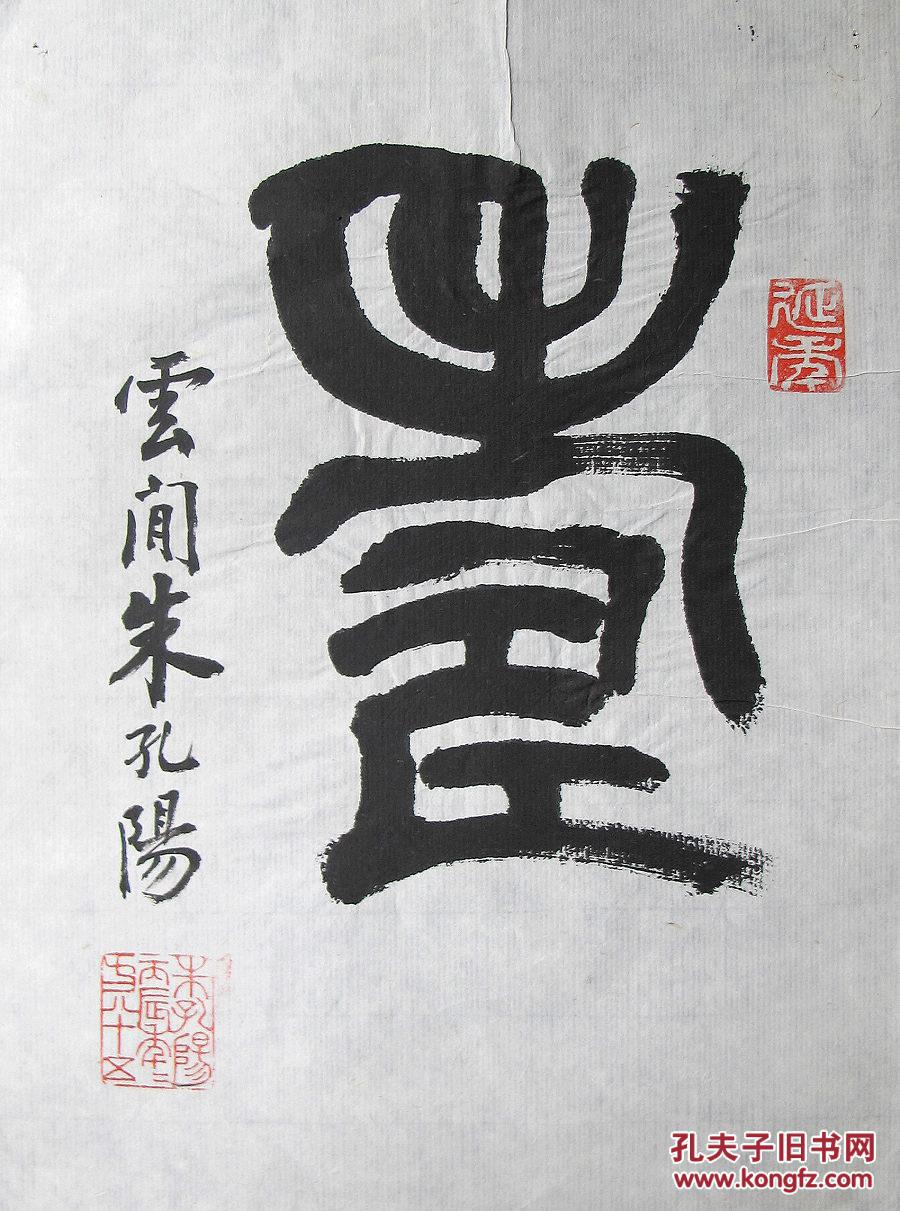 壽
延年
雲間朱孔陽
朱孔陽
丙辰年
方八十五
孔夫子旧书网
www.kongfz.com